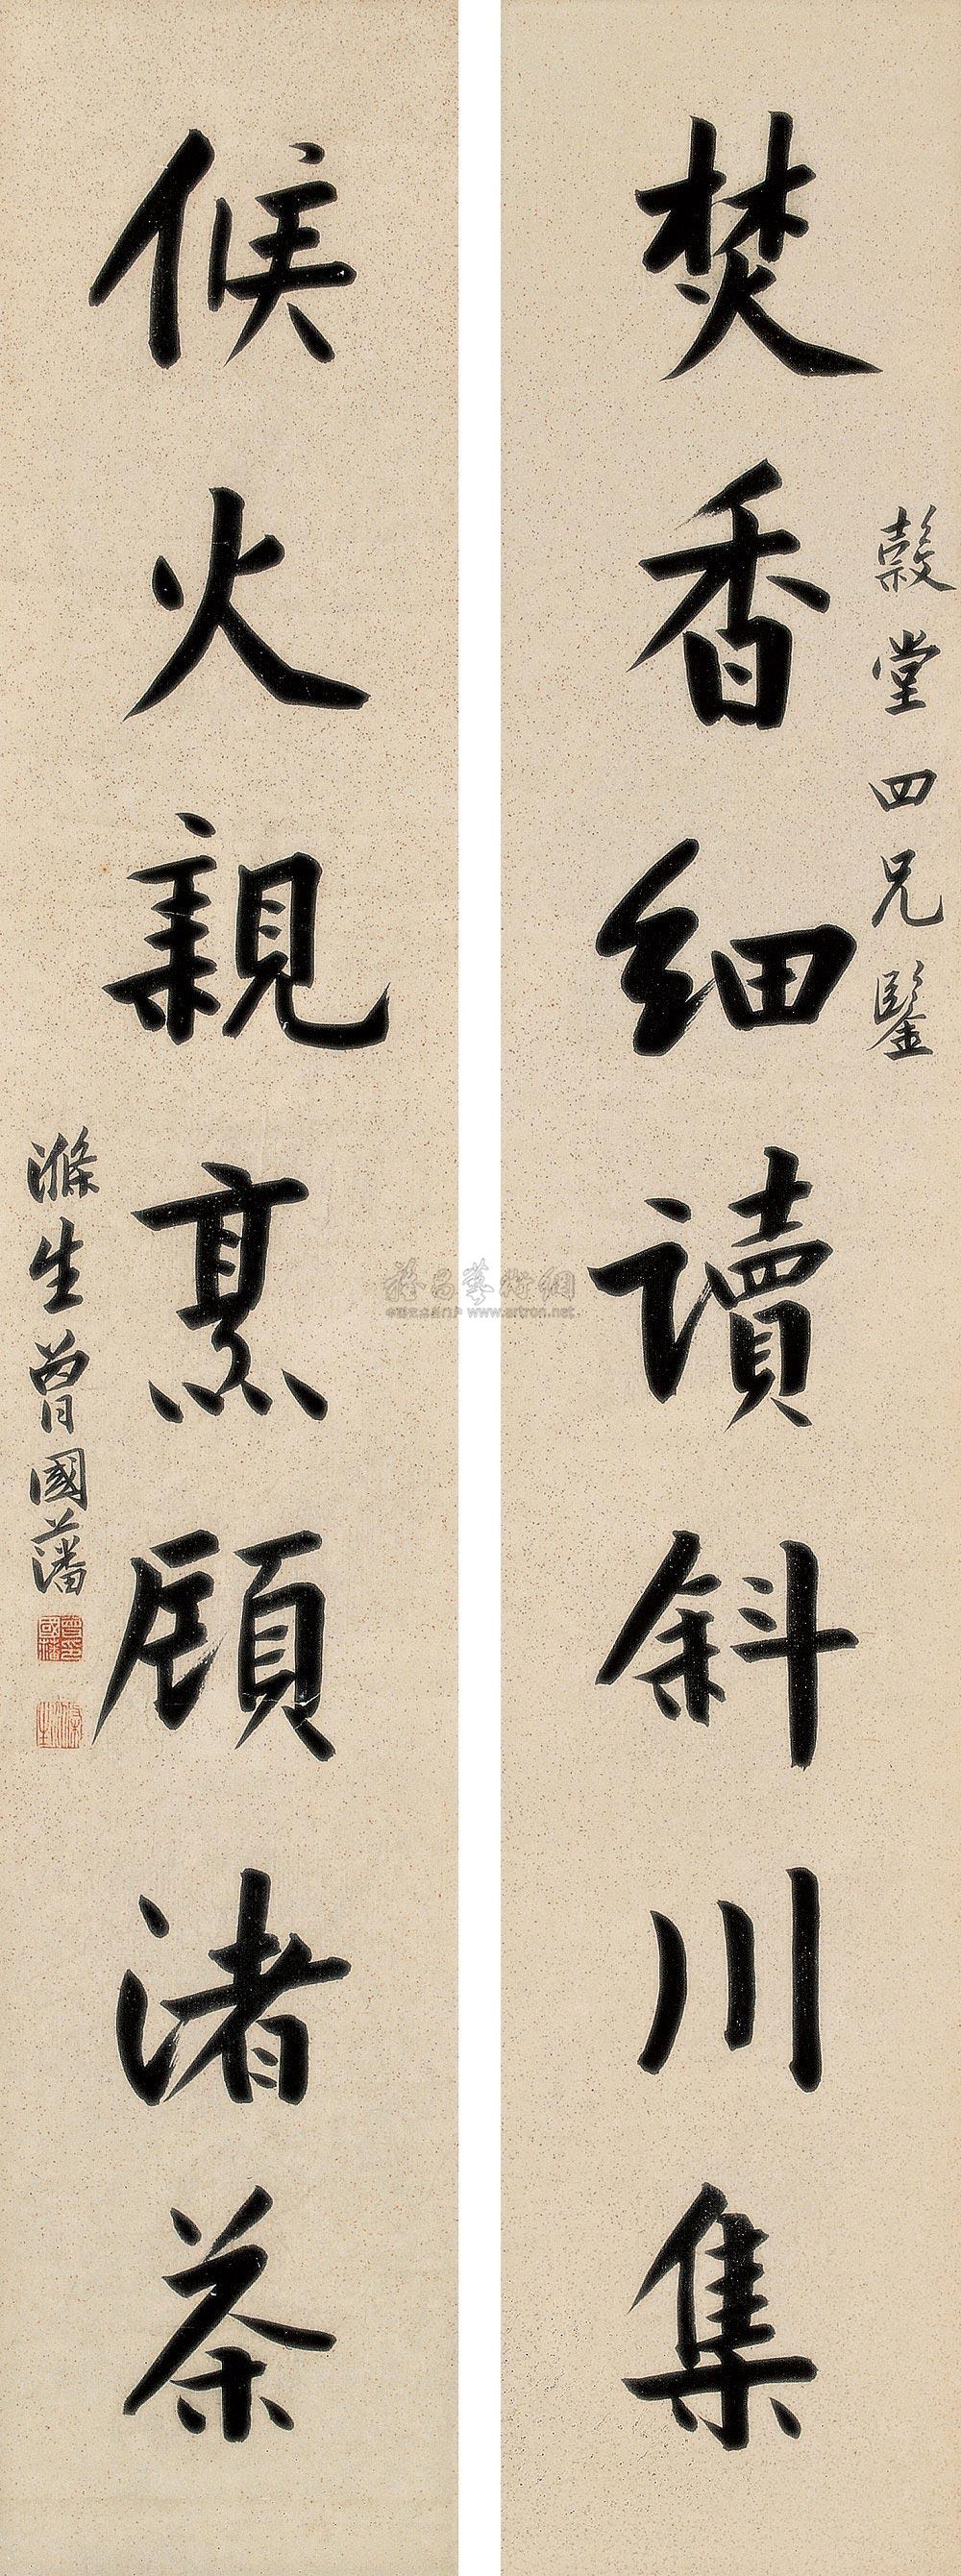 焚香細讀斜川集
糓堂四兄鑒
候火親烹顧渚茶
滌生曾國藩
曾國藩印
滌生
雅昌藝術網
www.artron.net